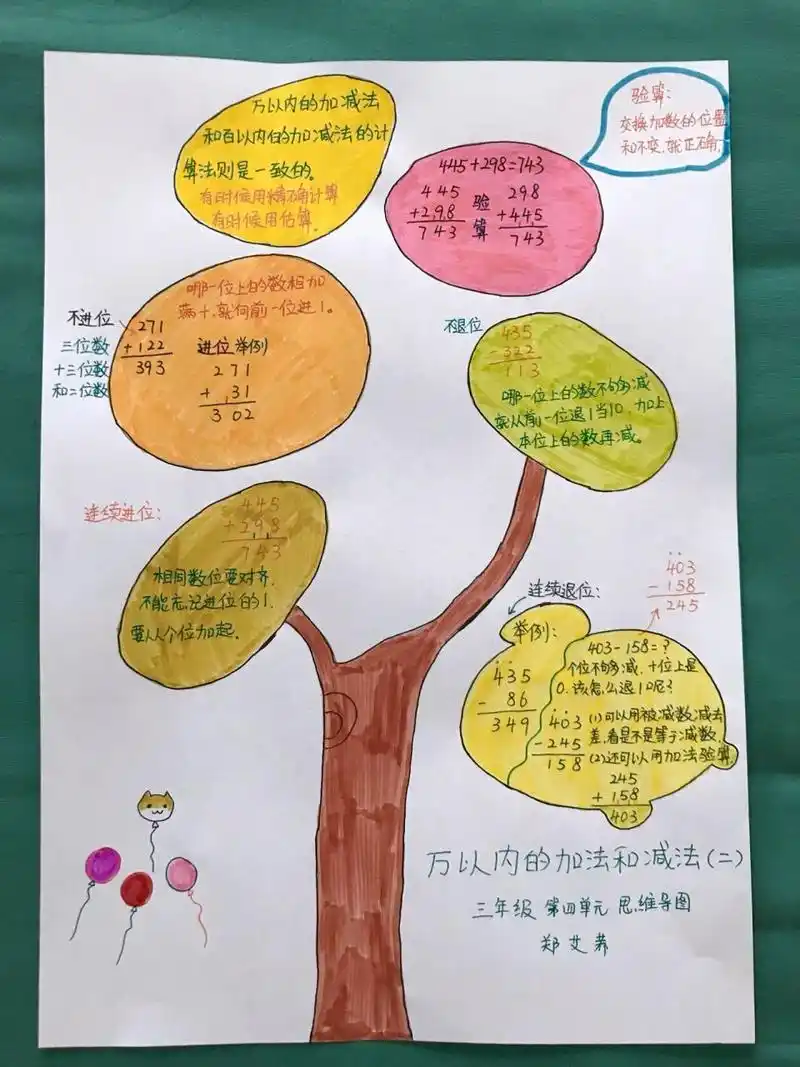 万以内的加减法
和百以内的加减法的计
算法则是一致的。
有时候用精确计算
有时候用估算。
验算:
交换加数的位置
和不变.就正确.
445+298=743
445
+298
743
验
算
298
+445
743
哪一位上的数相加
满十,就向前一位进1。
不进位
三位数
+三位数
和二位数
271
+122
393
进位举例
271
+ 31
302
不退位
435
-322
113
哪一位上的数不够减
就从前一位退1当10,加上
本位上的数再减。
连续进位:
445
+298
743
相同数位要对齐.
不能忘记进位的1.
要从个位加起.
403
-158
245
连续退位:
举例:
435
- 86
349
403-158=?
个位不够减,十位上是
0.该怎么退10呢?
403
-245
158
(1)可以用被减数减去
差,看是不是等于减数.
(2)还可以用加法验算.
245
+158
403
万以内的加法和减法(二)
三年级 第四单元 思维导图
郑艾